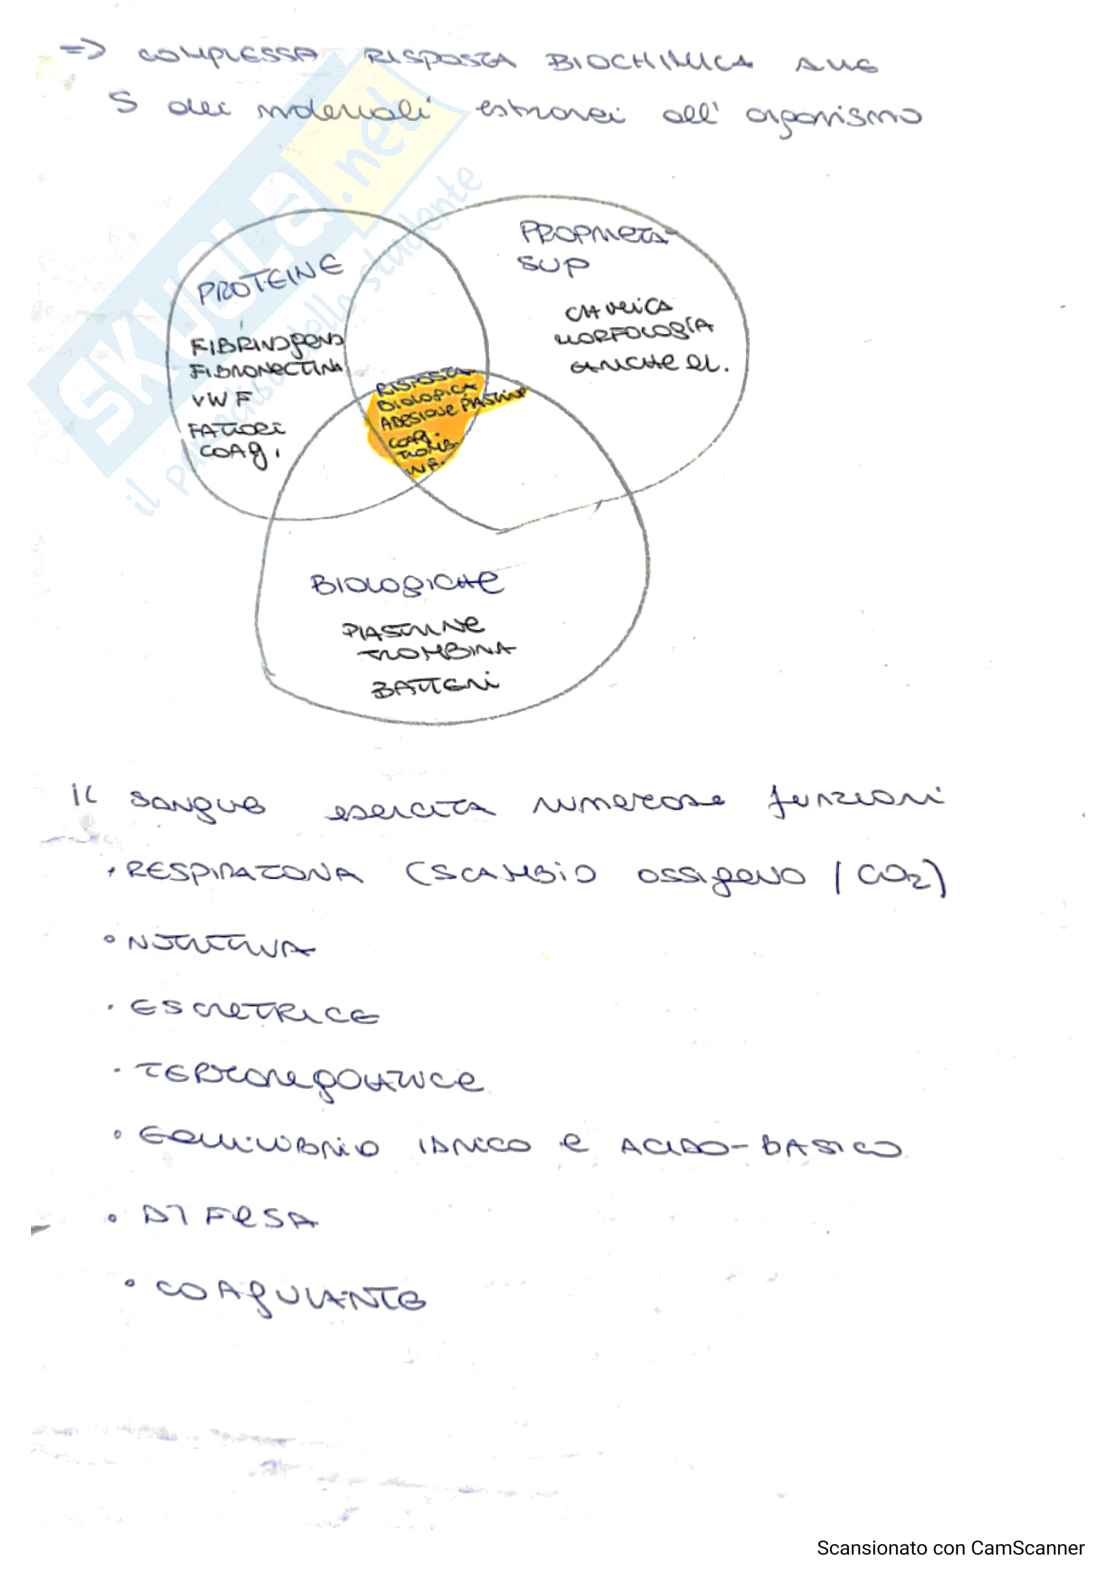 => COMPLESSA RISPOSTA BIOCHIMICA ALLE
S dei materiali estranei all'organismo
PROTEINE
FIBRINOgENO
FIBRONECTINA
VWF
FATTORI
COAg.
PROPRIETÀ
SUP
CHIMICA
MORFOLOGIA
ANCHE EL.
RISPOSTA
BIOLOGICA
ADESIONE PIASTRINE
COAg.
TROMB.
INF.
BIOLOgICHE
PIASTRINE
TROMBINA
BATTERI
IL sangue esercita numerose funzioni
• RESPIRATORIA (SCAMBIO OSSIgENO / CO2)
• NUTRITIVA
• ESCRETRICE
• TERMOREgOLATRICE
• EQUILIBRIO IONICO e ACIDO-BASICO
• DIFESA
• COAgULANTE
SKUOLA.net
il paradiso dello studente
Scansionato con CamScanner